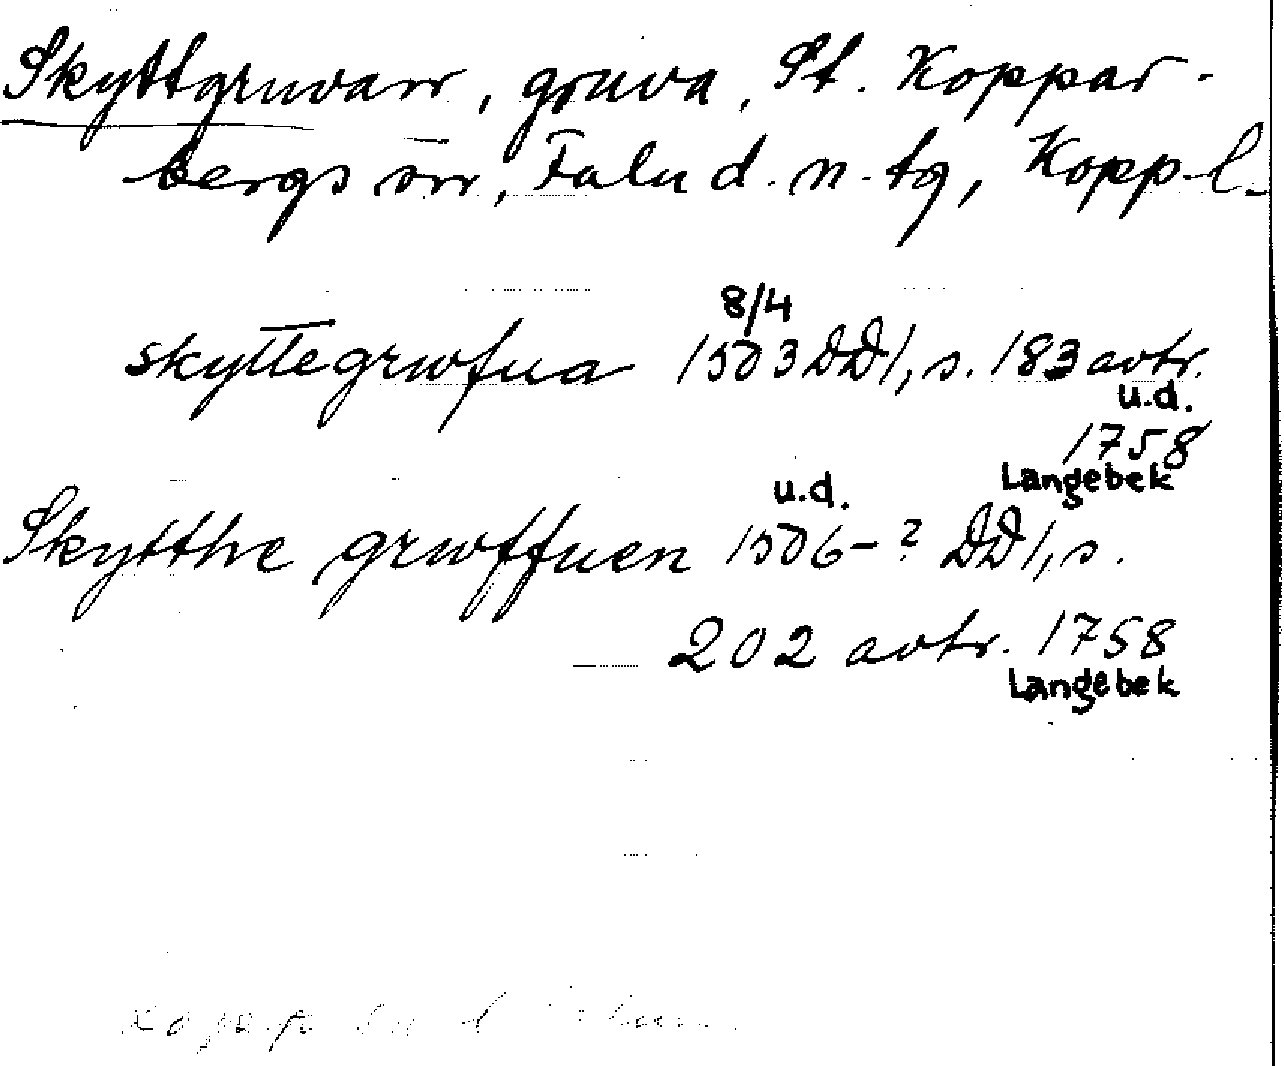 Skyttgruvan, gruva, St. Koppar-
bergs sn, Falu d. n. tg, Kopp. l.
8/4
skyttegrwfua 1503 DD1, s. 183 avtr.
u.d.
1758
Langebek
u.d.
Skytthe grwffuen 1506-? DD1, s.
202 avtr. 1758
Langebek
Kopp